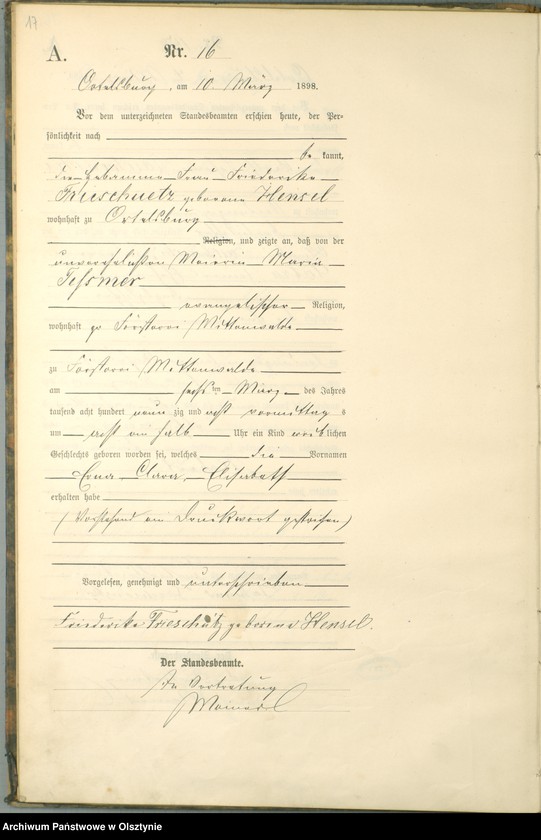 17
A. Nr. 16
Ortelsburg, am 10. März 1898.
Vor dem unterzeichneten Standesbeamten erschien heute, der Per-
sönlichkeit nach
be kannt,
die Hebamme Frau Friederike
Frieschuetz geborene Hensel
wohnhaft zu Ortelsburg
Religion, und zeigte an, daß von der
unverehelichten Meierin Marie
Tessmer
evangelischer Religion,
wohnhaft zu Försterei Mittenwalde
zu Försterei Mittenwalde
am sechs ten März des Jahres
tausend acht hundert neun zig und acht vormittag s
um acht ein halb Uhr ein Kind weib lichen
Geschlechts geboren worden sei, welches die Vornamen
Erna Clara Elisabeth
erhalten habe
(Vorstehend ein Druckwort gestrichen)
Vorgelesen, genehmigt und unterschrieben
Friederike Frieschütz geborene Hensel.
Der Standesbeamte.
In Vertretung
Archiwum Państwowe w Olsztynie